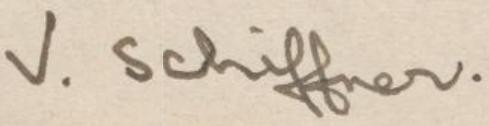 V. Schiffner.